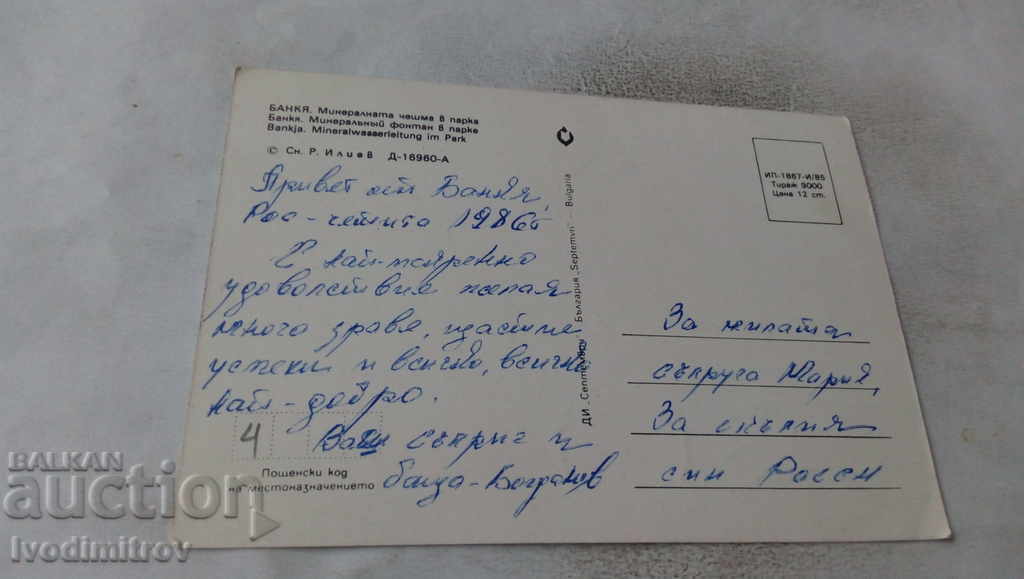 БАНКЯ. Минералната чешма в парка
Банкя. Минеральный фонтан в парке
Bankja. Mineralwasserleitung im Park
© Сн. Р. Илиев Д-16960-А
Привет от Банкя,
1986
С най-искренно
удоволствия желая
много здраве, щастие
успехи и всичко, всичко
най-добро.
Ваш съпруг и
баща-Богданов
4
Пошенски код
на местоназначението
ДИ „Септември" България „Septemvri" – Bulgaria
ИП-1867-И/85
Тираж 9000
Цена 12 ст.
За милата
съпруга Мария,
За скъпия
син Росен
BALKAN
auction
ivodimitrov